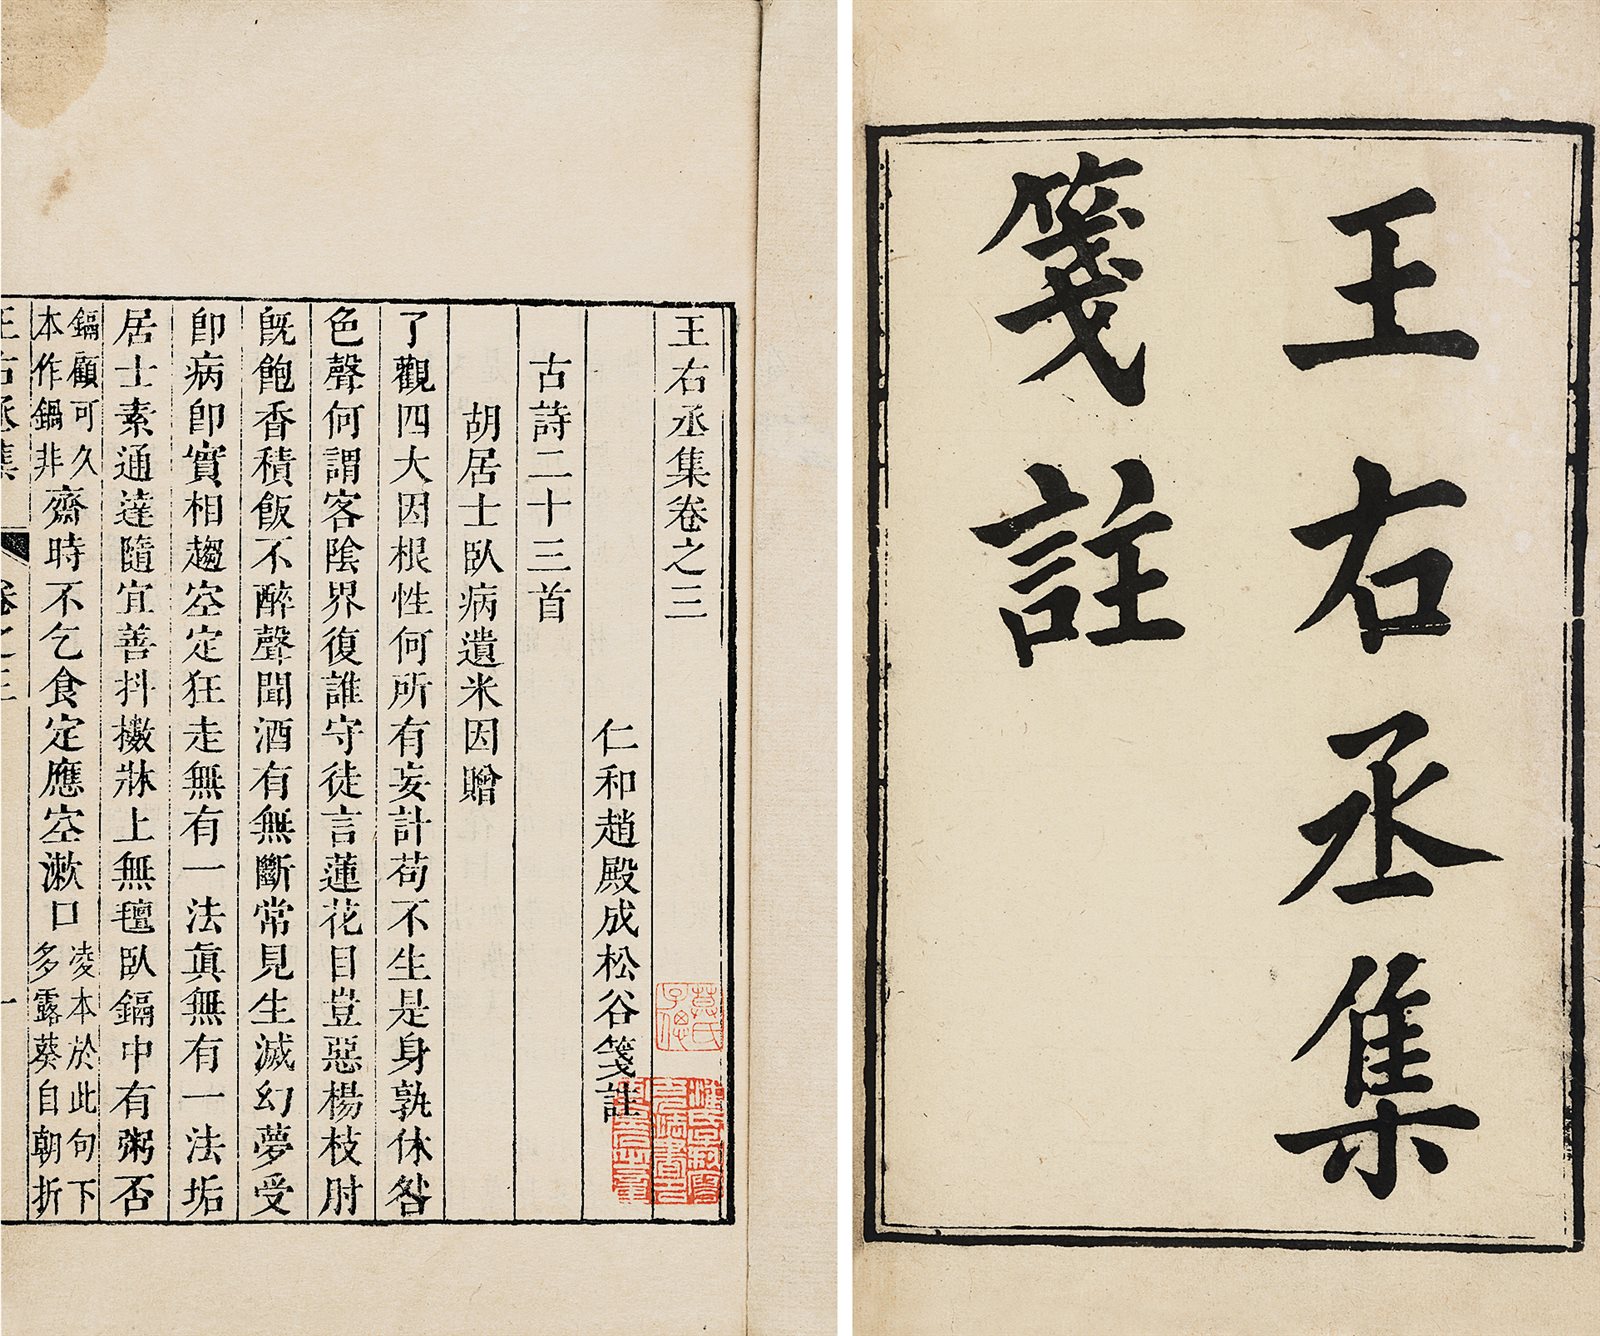 王右丞集
箋註
王右丞集卷之三
仁和趙殿成松谷箋註
古詩二十三首
胡居士臥病遺米因贈
了觀四大因根性何所有妄計苟不生是身孰休咎
色聲何謂客陰界復誰守徒言蓮花目豈惡楊枝肘
既飽香積飯不醉聲聞酒有無斷常見生滅幻夢受
即病即實相趨空定狂走無有一法眞無有一法垢
居士素通達隨宜善抖擻牀上無氊臥鎘中有粥否
鎘顧可久
本作鍋非
齋時不乞食定應空漱口
凌本於此句下
多露葵自朝折
王右丞集 卷之三 一
莫氏子偲